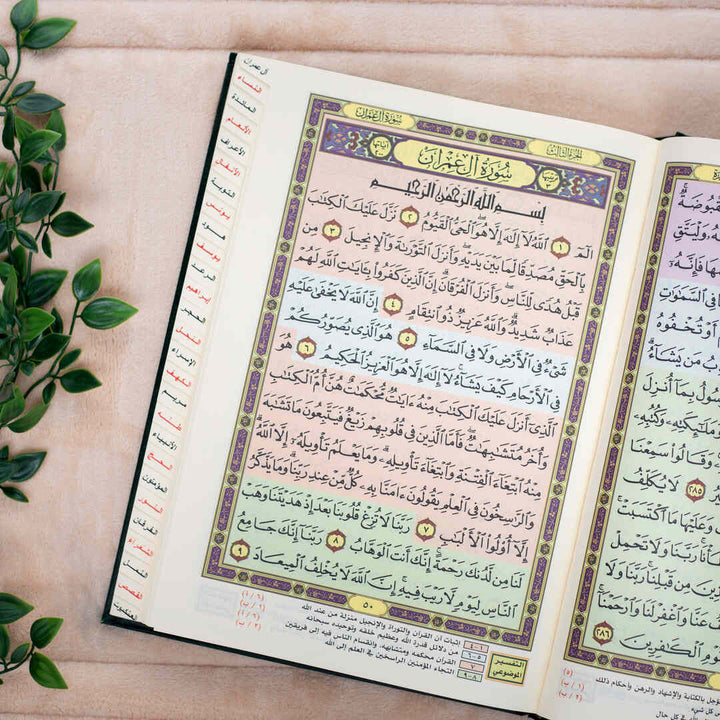 آل عمران
النساء
المائدة
الأنعام
الأعراف
الأنفال
التوبة
يونس
هود
يوسف
الرعد
إبراهيم
الحجر
النحل
الإسراء
الكهف
مريم
طه
الأنبياء
الحج
المؤمنون
النور
الفرقان
الشعراء
النمل
القصص
العنكبوت
الجزء الثالث
سورة آل عمران
سُورَةُ آلِ عِمْرَانَ
بِسْمِ ٱللَّهِ ٱلرَّحْمَٰنِ ٱلرَّحِيمِ
الٓمٓ ١ ٱللَّهُ لَآ إِلَٰهَ إِلَّا هُوَ ٱلْحَىُّ ٱلْقَيُّومُ ٢ نَزَّلَ عَلَيْكَ ٱلْكِتَٰبَ
بِٱلْحَقِّ مُصَدِّقًا لِّمَا بَيْنَ يَدَيْهِ وَأَنزَلَ ٱلتَّوْرَىٰةَ وَٱلْإِنجِيلَ ٣ مِن
قَبْلُ هُدًى لِّلنَّاسِ وَأَنزَلَ ٱلْفُرْقَانَ إِنَّ ٱلَّذِينَ كَفَرُوا۟ بِـَٔايَٰتِ ٱللَّهِ لَهُمْ
عَذَابٌ شَدِيدٌ وَٱللَّهُ عَزِيزٌ ذُو ٱنتِقَامٍ ٤ إِنَّ ٱللَّهَ لَا يَخْفَىٰ عَلَيْهِ
شَىْءٌ فِى ٱلْأَرْضِ وَلَا فِى ٱلسَّمَآءِ ٥ هُوَ ٱلَّذِى يُصَوِّرُكُمْ
فِى ٱلْأَرْحَامِ كَيْفَ يَشَآءُ لَآ إِلَٰهَ إِلَّا هُوَ ٱلْعَزِيزُ ٱلْحَكِيمُ ٦ هُوَ
ٱلَّذِىٓ أَنزَلَ عَلَيْكَ ٱلْكِتَٰبَ مِنْهُ ءَايَٰتٌ مُّحْكَمَٰتٌ هُنَّ أُمُّ ٱلْكِتَٰبِ
وَأُخَرُ مُتَشَٰبِهَٰتٌ فَأَمَّا ٱلَّذِينَ فِى قُلُوبِهِمْ زَيْغٌ فَيَتَّبِعُونَ مَا تَشَٰبَهَ
مِنْهُ ٱبْتِغَآءَ ٱلْفِتْنَةِ وَٱبْتِغَآءَ تَأْوِيلِهِۦ وَمَا يَعْلَمُ تَأْوِيلَهُۥٓ إِلَّا ٱللَّهُ
وَٱلرَّٰسِخُونَ فِى ٱلْعِلْمِ يَقُولُونَ ءَامَنَّا بِهِۦ كُلٌّ مِّنْ عِندِ رَبِّنَا وَمَا يَذَّكَّرُ
إِلَّآ أُو۟لُوا۟ ٱلْأَلْبَٰبِ ٧ رَبَّنَا لَا تُزِغْ قُلُوبَنَا بَعْدَ إِذْ هَدَيْتَنَا وَهَبْ
لَنَا مِن لَّدُنكَ رَحْمَةً إِنَّكَ أَنتَ ٱلْوَهَّابُ ٨ رَبَّنَآ إِنَّكَ جَامِعُ
ٱلنَّاسِ لِيَوْمٍ لَّا رَيْبَ فِيهِ إِنَّ ٱللَّهَ لَا يُخْلِفُ ٱلْمِيعَادَ ٩
٥٠
التفسير الموضوعي
١-٤ إثبات أن القرآن والتوراة والإنجيل منزلة من عند الله
٥-٦ من دلائل قدرة الله وعظيم خلقه وتوحيده سبحانه
٧ القرآن محكمه ومتشابهه، وانقسام الناس فيه إلى فريقين
٨-٩ التجاء المؤمنين الراسخين في العلم إلى الله
وَلْيَتَّقِ
فَإِنَّهُۥٓ
فِى ٱلسَّمَٰوَٰتِ
أَوْ تُخْفُوهُ
مَن يَشَآءُ
بِمَآ أُنزِلَ
وَكُتُبِهِۦ
وَقَالُوا۟ سَمِعْنَا
٢٨٥ لَا يُكَلِّفُ
وَعَلَيْهَا مَا ٱكْتَسَبَتْ
رَبَّنَا وَلَا تَحْمِلْ
مِن قَبْلِنَا رَبَّنَا وَلَا
عَنَّا وَٱغْفِرْ لَنَا وَٱرْحَمْنَآ
ٱلْقَوْمِ ٱلْكَٰفِرِينَ ٢٨٦
بالكتابة والإشهاد والرهن وأحكام ذلك